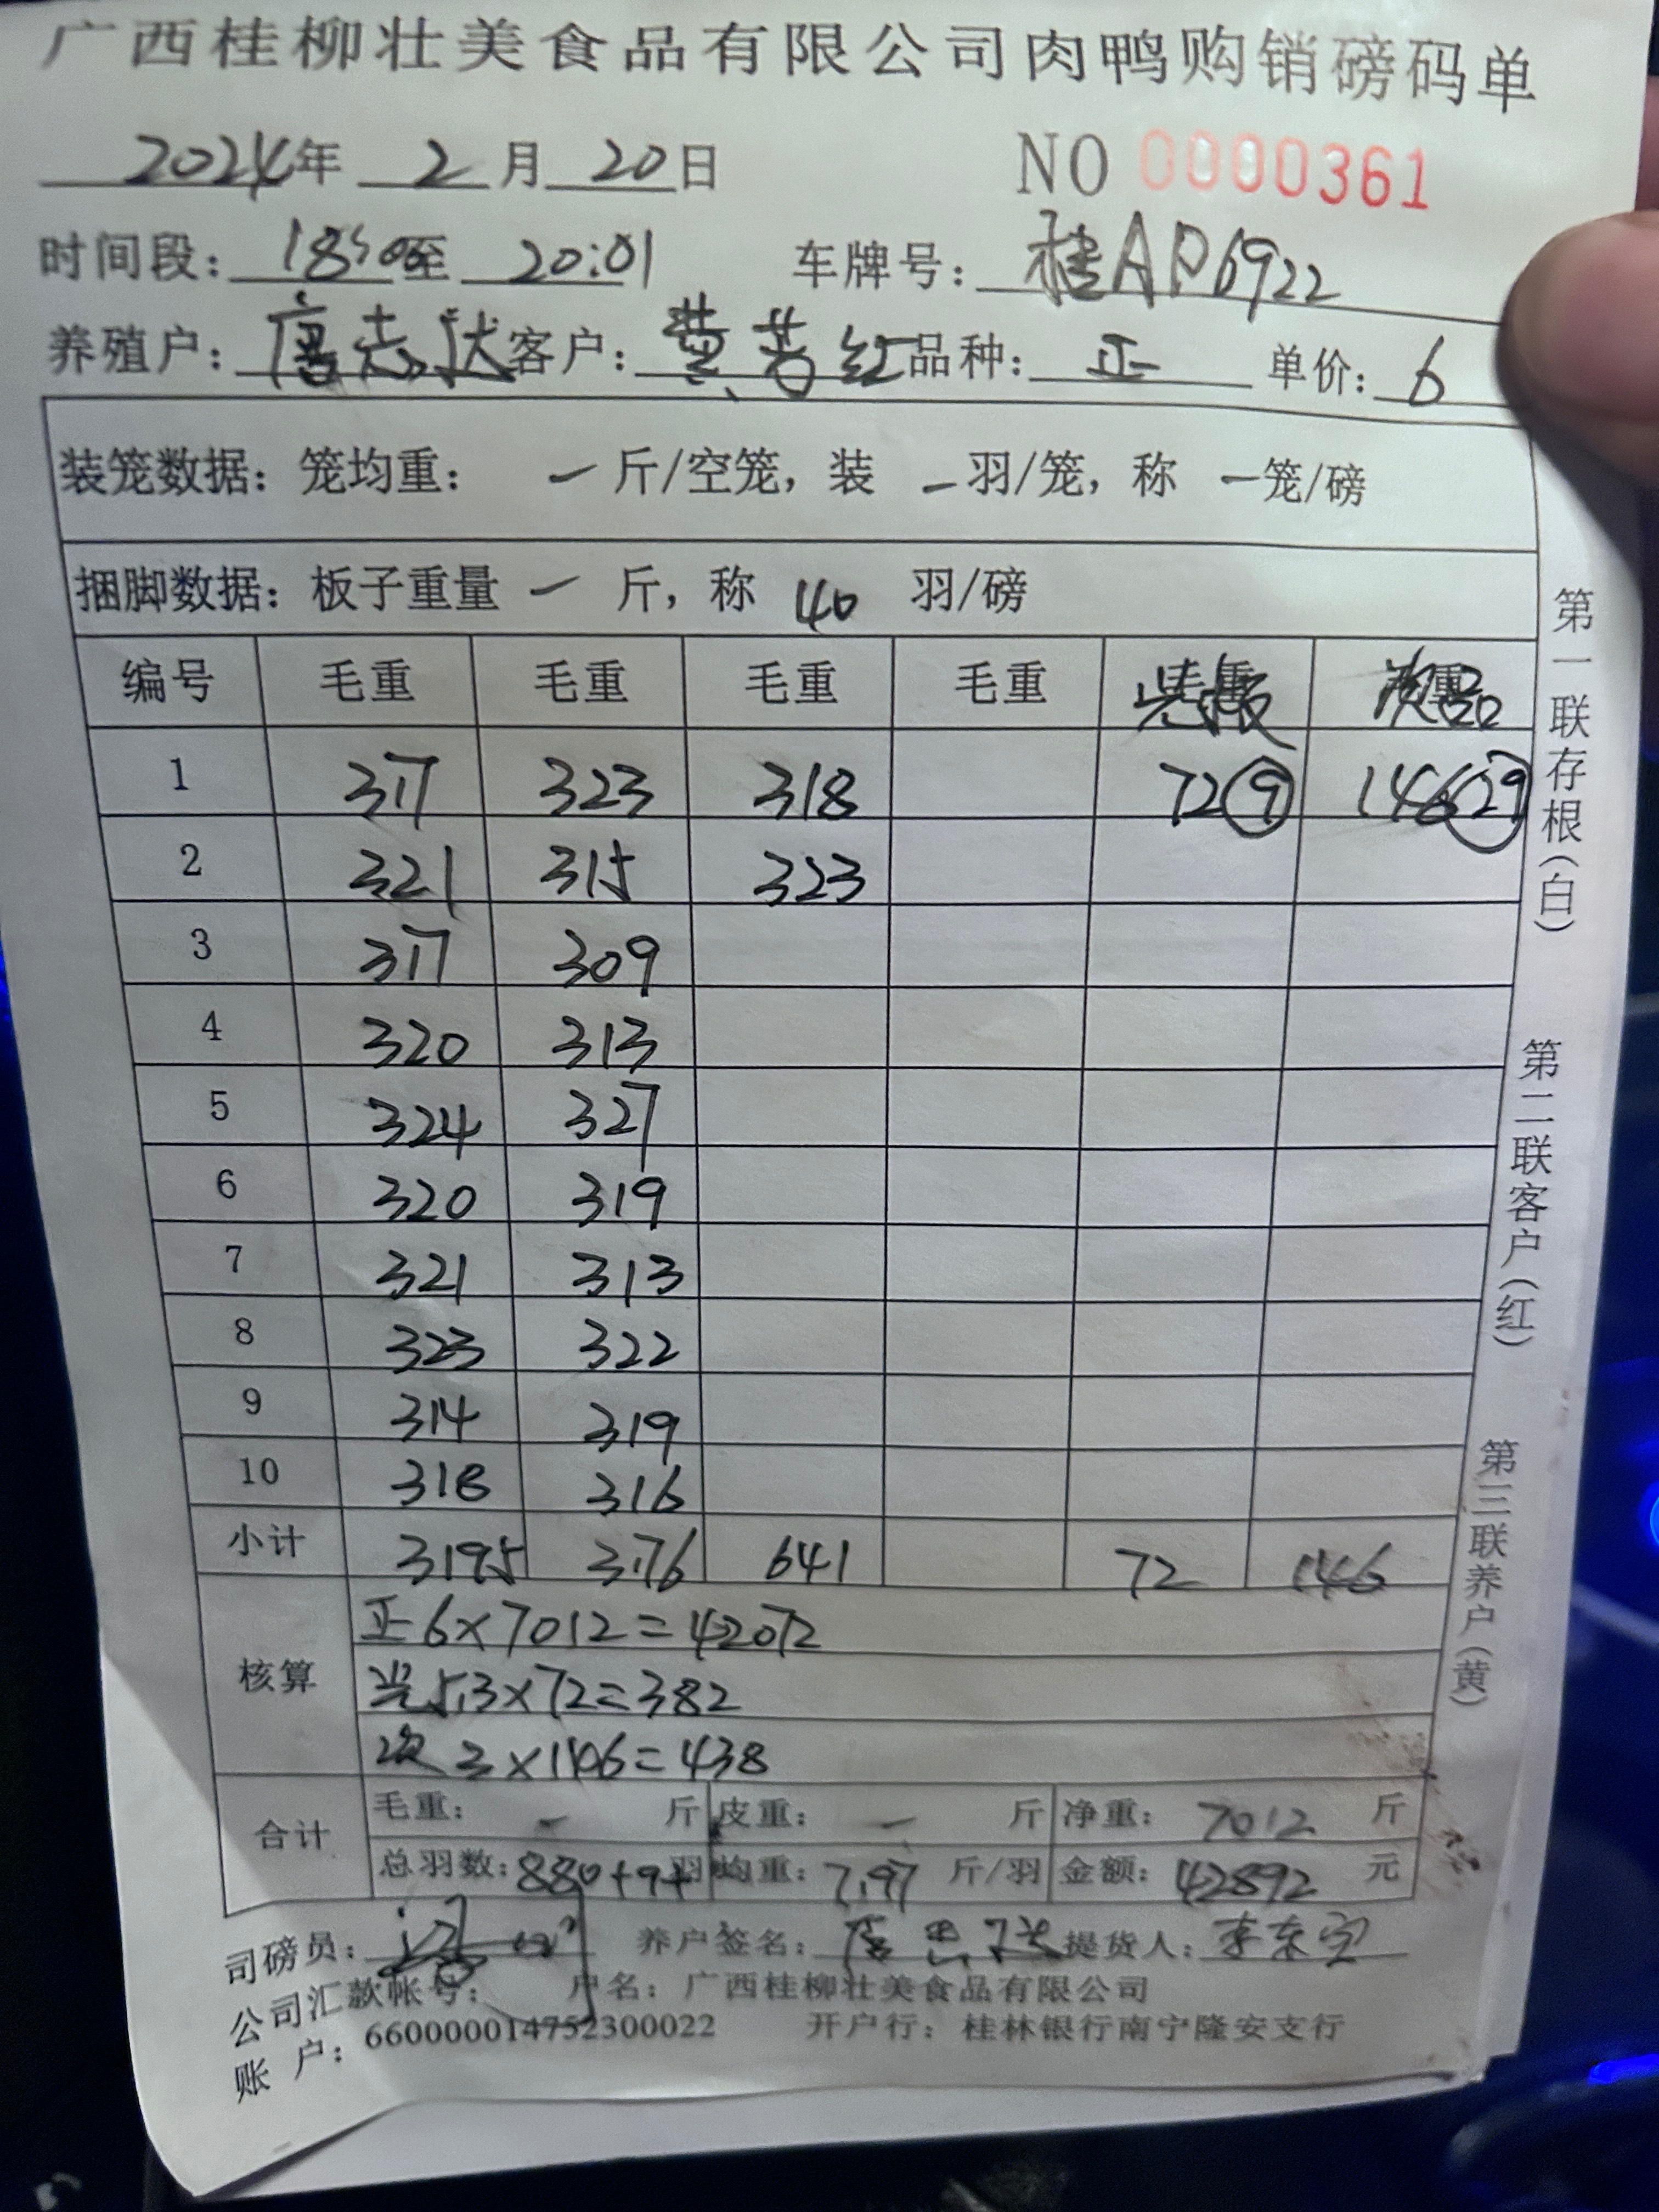 广西桂柳壮美食品有限公司肉鸭购销磅码单
2024年 2月20日 NO 0000361
时间段: 至 20:01 车牌号: 桂AP6922
养殖户: 唐志 客户: 黄 红 品种: 正 单价: 6
装笼数据: 笼均重: — 斤/空笼, 装 — 羽/笼, 称 — 笼/磅
捆脚数据: 板子重量 — 斤, 称 40 羽/磅
编号 毛重 毛重 毛重 毛重 次品
1 317 323 318 72 9 146 29
2 321 315 323
3 317 309
4 320 313
5 324 327
6 320 319
7 321 313
8 323 322
9 314 319
10 318 316
小计 3195 3176 641 72 146
核算 正 6×7012=42072
光 5.3×72=382
次 3×146=438
合计 毛重: — 斤 皮重: — 斤 净重: 7012 斤
总羽数: 880+9+ 羽 均重: 7.97 斤/羽 金额: 42892 元
司磅员: 养户签名: 唐 提货人: 李东
公司汇款帐号: 户名: 广西桂柳壮美食品有限公司
账 户: 660000014752300022 开户行: 桂林银行南宁隆安支行
第一联存根(白) 第二联客户(红) 第三联养户(黄)